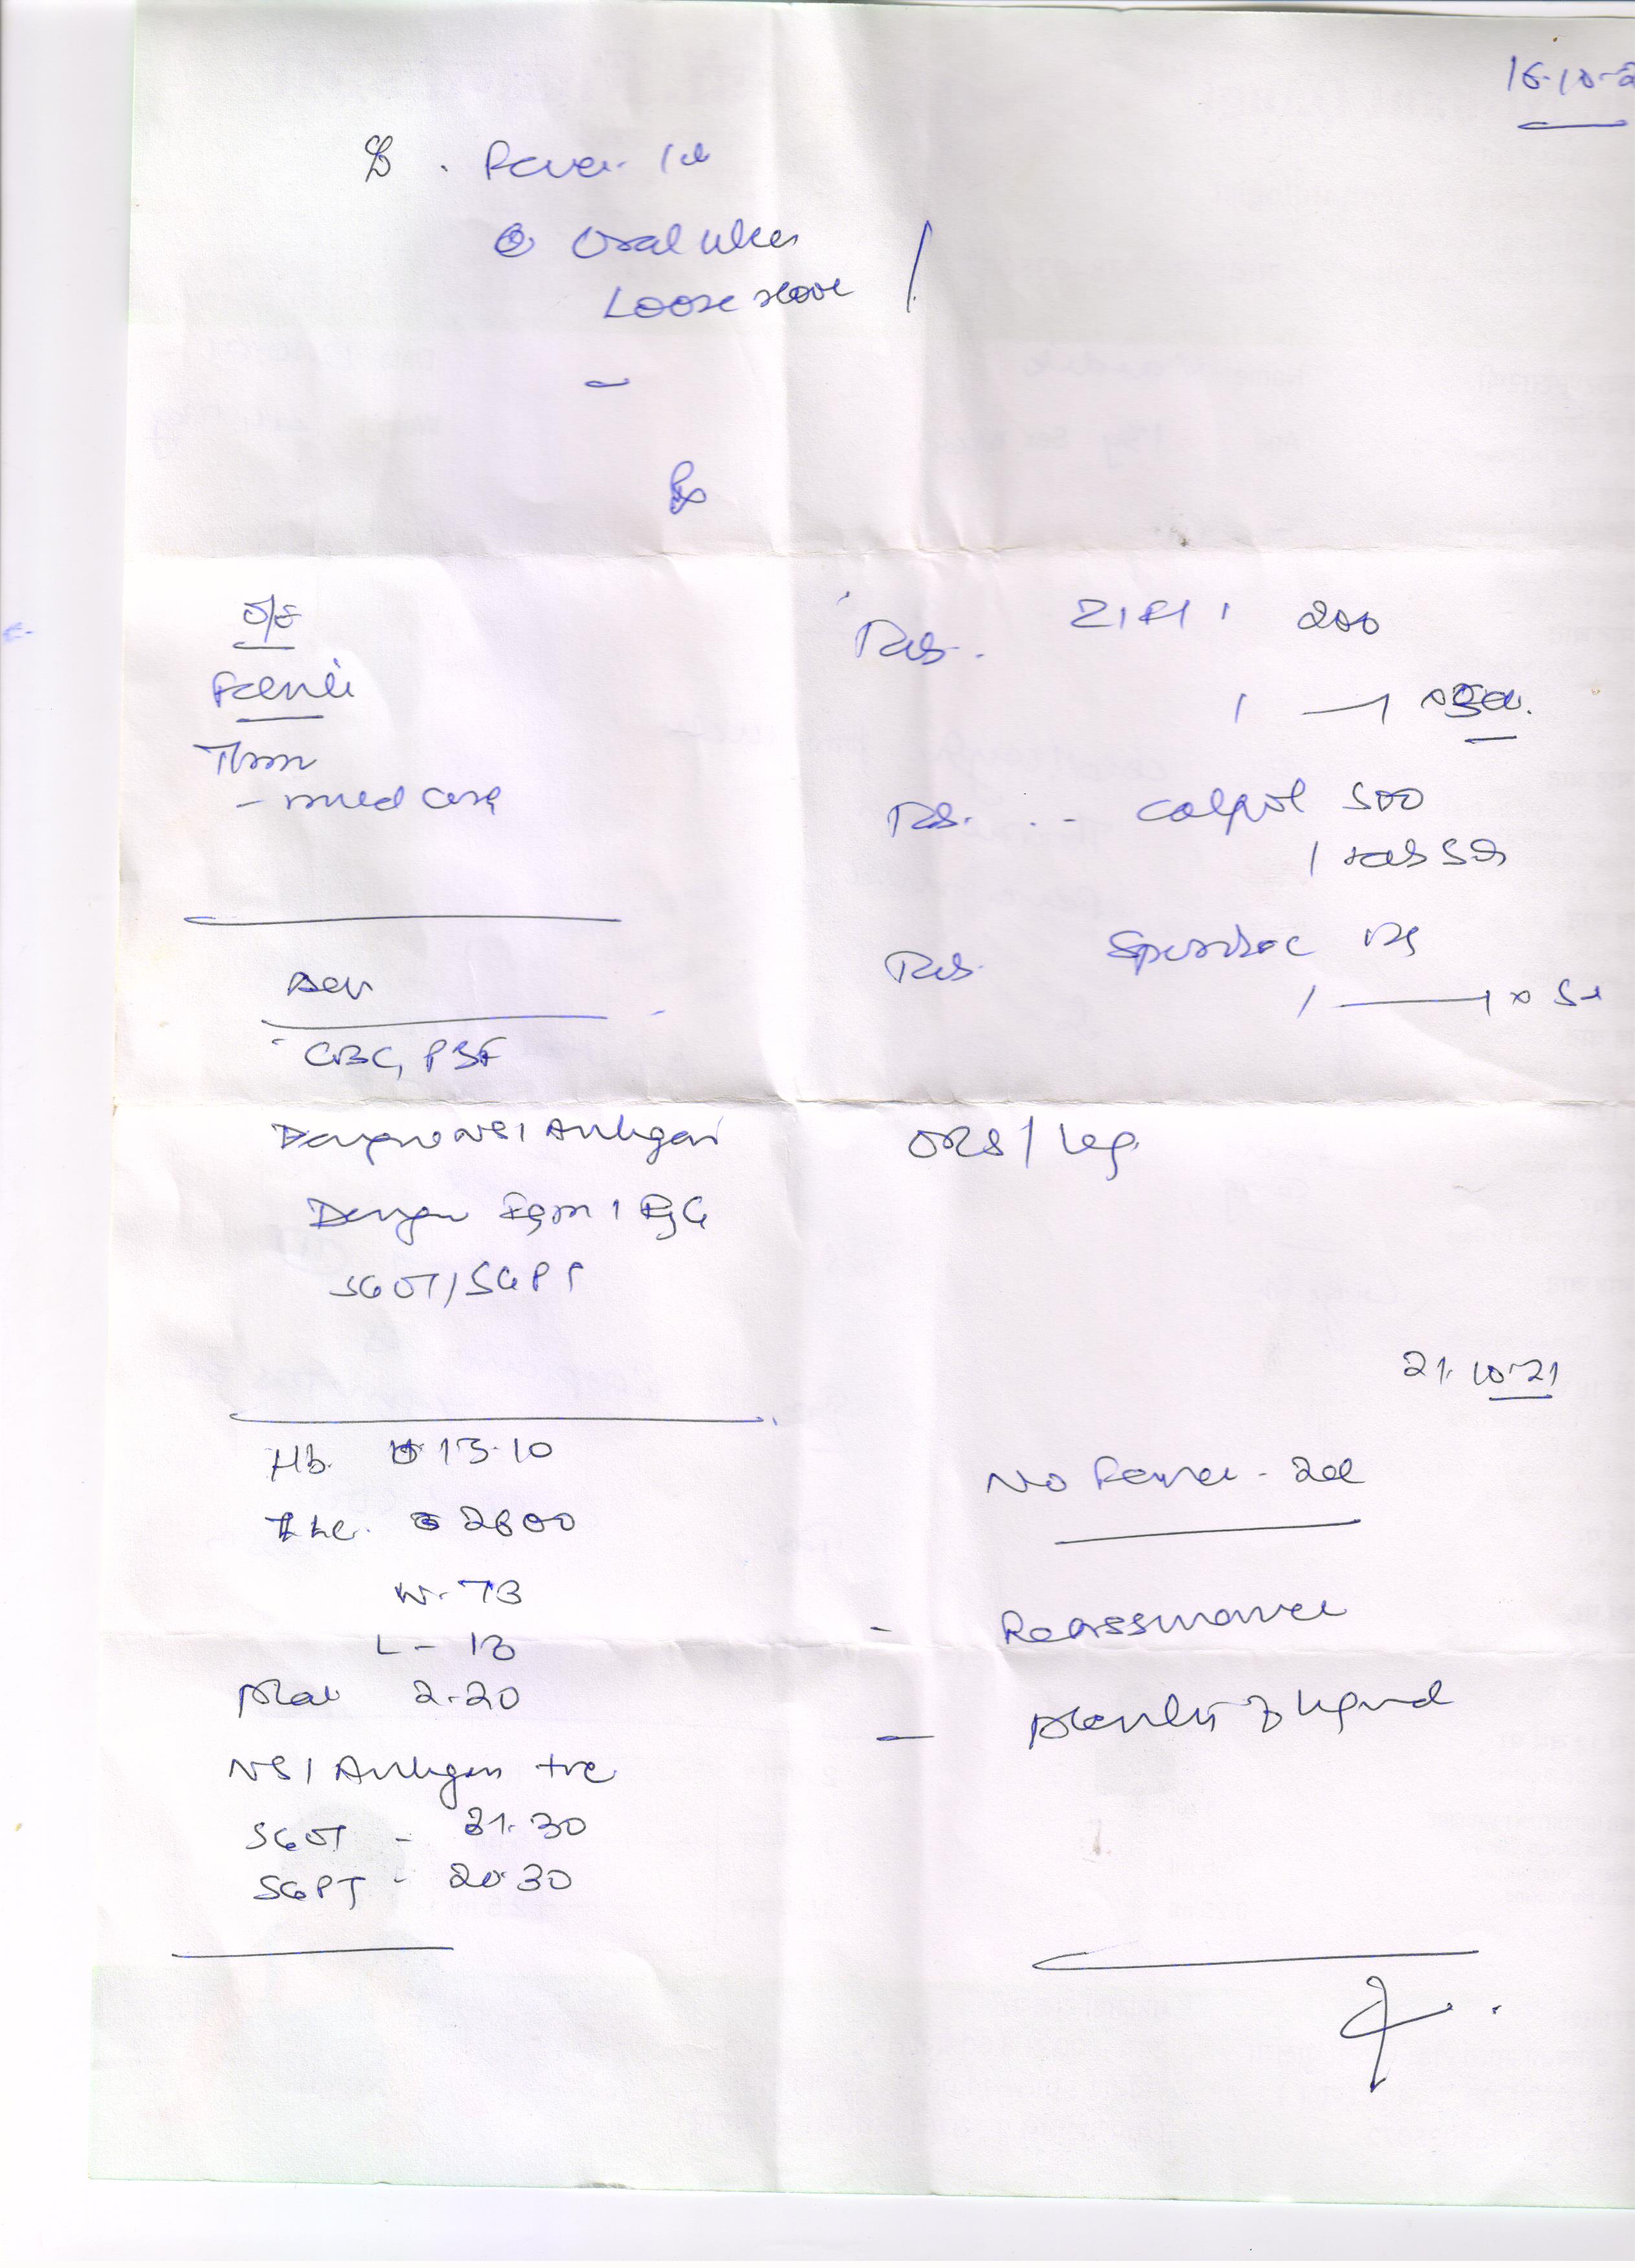 16-10-2
Fever. 1d
Oral ulcer
Loose stool
Rx
O/E
Febrile
Throat
- mild cong
Adv
CBC, PBF
Dengue NS1 Antigen
Dengue IgM / IgG
SGOT/SGPT
Hb. 13.10
TLC. 2600
N. 73
L - 18
Plat 2.20
NS1 Antigen +ve
SGOT - 21.30
SGPT - 20.30
Tab. ZIFI 200
1 — 1 x 5d.
Tab. Calpol 500
1 tab SOS
Tab. Sporidac DS
1 — 1 x 5d
ORS /
21.10.21
No Fever - 2d
- Reassurance
- Plenty of liquid